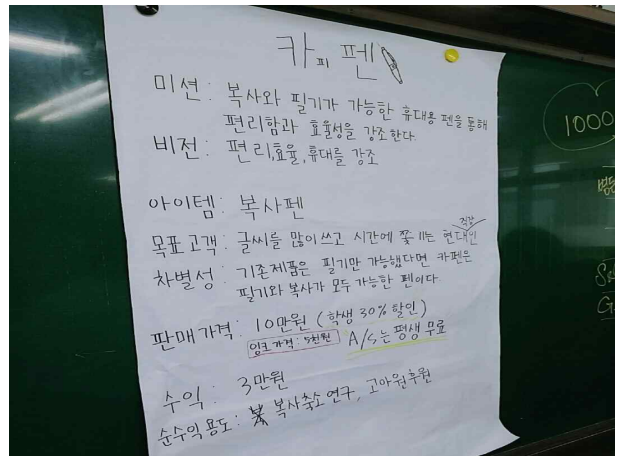 카피펜
미션: 복사와 필기가 가능한 휴대용 펜을 통해
편리함과 효율성을 강조한다.
비전: 편리,효율,휴대를 강조
아이템: 복사펜
직장
목표고객: 글씨를 많이쓰고 시간에 쫓기는 현대인
차별성: 기존제품은 필기만 가능했다면 카펜은
필기와 복사가 모두 가능한 펜이다.
판매가격: 10만원 (학생 30% 할인)
잉크가격: 5천원 A/S는 평생 무료
수익: 3만원
순수익용도: 복사축소연구, 고아원후원
1000